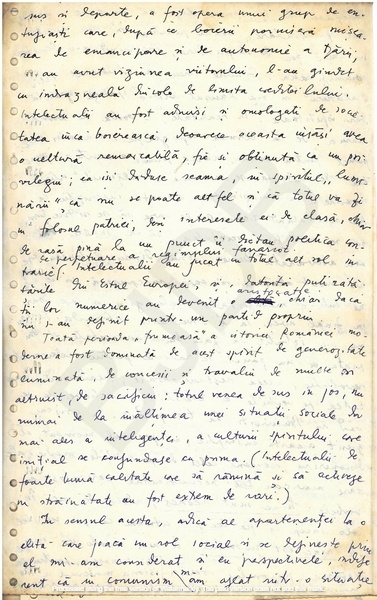 sus și departe, a fost opera unui grup de en-
tuziaști care, după ce boierii porniseră mișca-
rea de emancipare și de autonomie a Țării,
au avut viziunea viitorului, l-au gîndit
cu îndrăzneală dincolo de limita credibilului.
Intelectualii au fost admiși și omologați de socie-
tatea încă boierească, deoarece aceasta însăși avea
o cultură remarcabilă, fie și obținută ca un pri-
vilegiu; ea își dăduse seama, în spiritul „Lumi-
nării”, că nu se poate altfel și că totul va fi
în folosul patriei, deși interesele ei de clasă, chiar
de castă pînă la un punct îi dictau politica con-
de perpetuare a regimului fanariot.
trarie. Intelectualii au jucat un total alt rol în
țările din Estul Europei, și, datorită puținătă-
ții lor numerice au devenit o aristocrație, chiar dacă
nu s-au definit printr-un partid propriu
Toată perioada „frumoasă” a istoriei României mo-
derne a fost dominată de acest spirit de generozitate
luminată, de concesii și travaliu de multe ori
altruist, de sacrificiu; totul venea de sus în jos, nu
numai de la înălțimea unei situații sociale dar
mai ales a inteligenței, a culturii spiritului care
inițial se confundase cu prima. (Intelectualii de
foarte bună calitate care să rămînă și să activeze
în străinătate au fost extrem de rari.)
În sensul acesta, adică al apartenenței la o
elită care joacă un rol social și se definește prin
el mi-am considerat și eu perspectivele, indife-
rent că în comunism m-am aflat într-o situație,